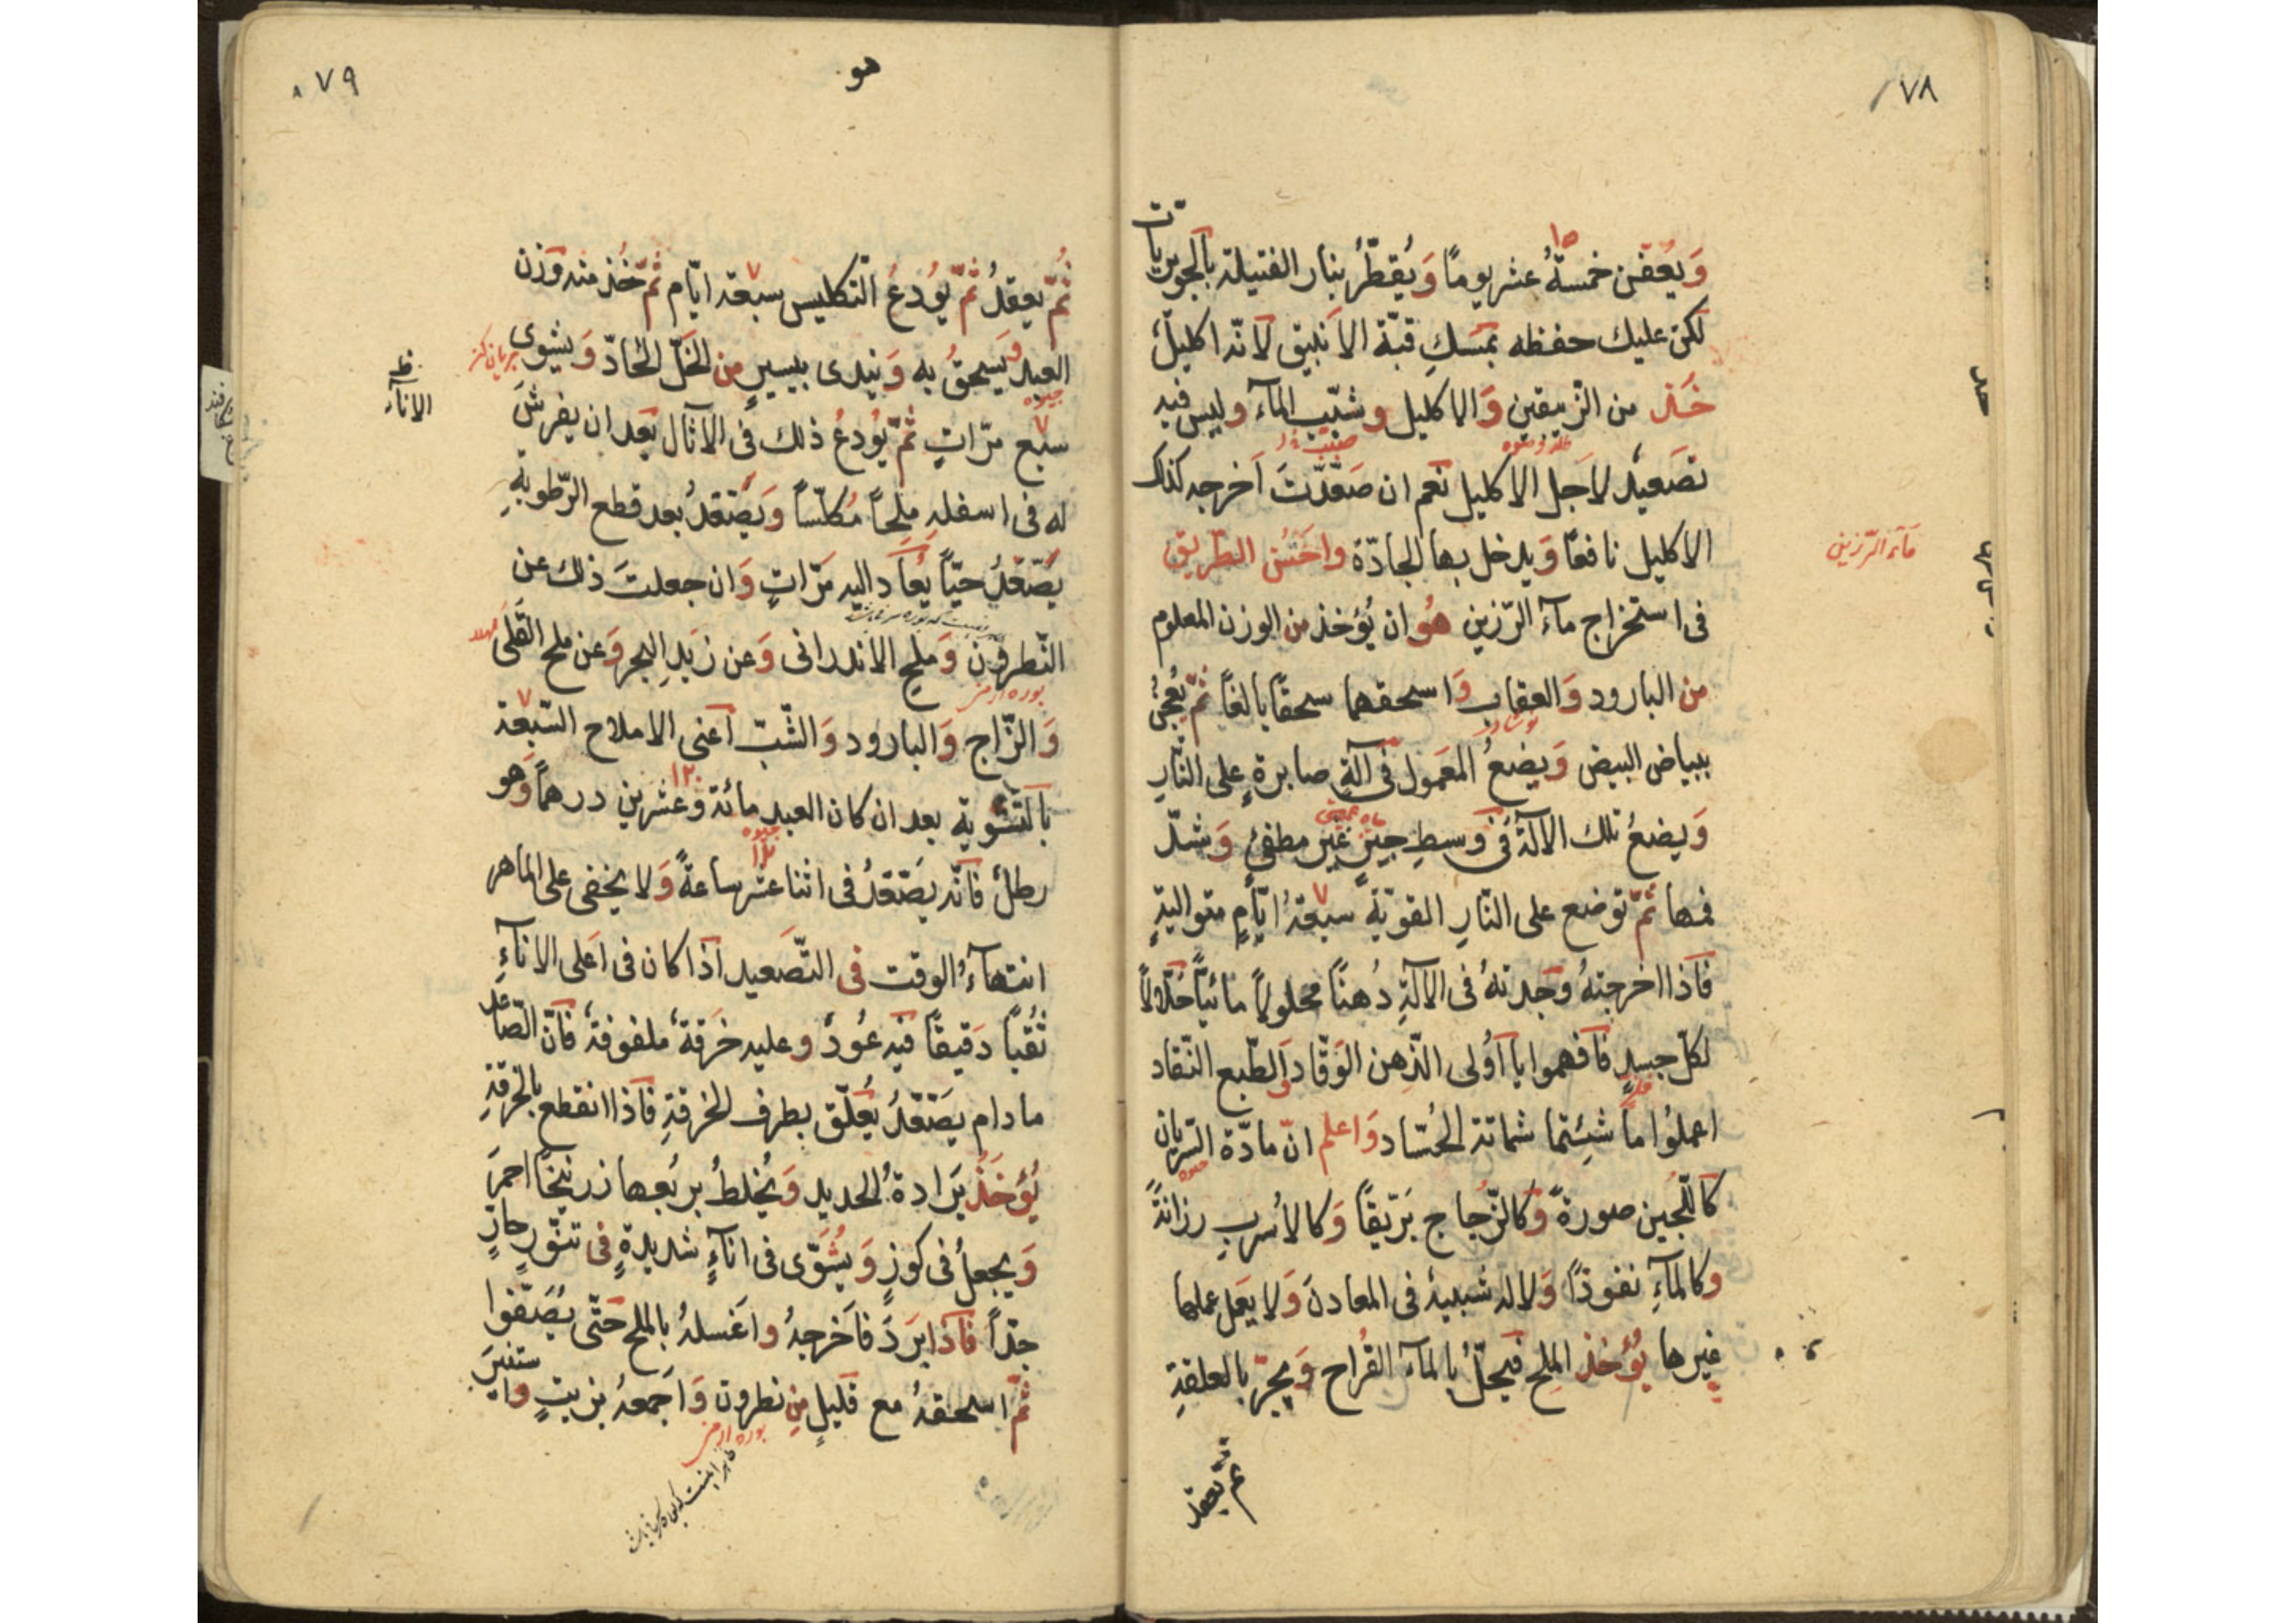 ٧٨
وَيُعفّن خمسةُ عشر يومًا وَيُقطّرُ بنار الفتيلة بالجوربات
١٥
لكن عليك حفظه بمسكِ قبّة الانبيق لانّه اكليلٌ
خُذ من الزّيبقين وَالاكليل وشبّب الماء وليس فيه
تصعيدٌ لاجل الاكليل نعم ان صَعّدتَ اخرجه كذلك
الاكليل نافعًا وَيدخل بها لجادّة واحسَن الطّريق
مآء الرّزين
فى استخراج مآء الرّزين هُو ان يُؤخذ من الوزن المعلوم
من البارود وَالعقاب وَاسحقهما سحقًا بالغًا ثمّ يُعجنُ
نوشادر
ببياض البيض وَيضعُ المعمول فى آلةٍ صابرةٍ على النّارِ
وَيضعُ تلك الآلة فى وسطِ جيرٍ غير مطفئٍ وَشدّ
فمها ثمّ توضع على النّارِ المقويّة سبعةُ ايّامٍ متواليةٍ
٧
فاذا اخرجتهُ وجدتهُ فى الآلةِ دُهنًا محلولًا مائيًّا حلّالًا
لكلّ جسدٍ فافهموا يا اُولى الذّهن الوَقّاد وَالطّبع النّقاد
اعملوُا ما شئتما شماتة الحُسّاد وَاعلم انّ مادّة السّريان
كاللُّجين صورةً وَكالزّجاج بَرّيقًا وَكالأسربِ رزانةً
وكالمآءِ نفوذًا وَلا له شبيهٌ فى المعادن وَلا يعمل عملها
غيرها يُؤخذ الملح فيحلّ بالمآء القُراح وَيجرّ بالعلقةِ
ثم يعقد
٧٩
هو
ثُمّ يعقدُ ثمّ يُودعُ التّكليس سبعة ايّام ثمّ خُذ منه وزن
٧
العبد وَيَسحقُ به وَيندى بيسيرٍ من الخلّ الحادّ وَيشوى
بريان كن
جيوه
ظ
الاناء
سبع مرّاتٍ ثمّ يُودعُ ذلك فى الآثال بعد ان يفرشَ
٧
له فى اسفله مِلحًا مُكلّسًا وَيصّعّدُ بعد قطع الرّطوبةِ
يَصّعّدُ حيًّا يُعاد اليه مَرّاتٍ وَان جعلتَ ذلك عن
النّطرون وَملح الاندرانى وَعن زبَدِ البحر وَعن ملح القَلَى
بوره ارمنى
وَالزّاج وَالبارود وَالشّبّ اعنى الاملاح السّبعة
٧
بالتّشوية بعد ان كان العبد مائة وَعشرين درهمًا وَهو
١٢٠
جيوه
رطلٌ فانّه يَصّعّدُ فى اثنا عشر ساعةً وَلا يخفى على الماهر
١٢
انتهآءُ الوقت فى التّصعيد اذا كان فى اعلى الاناءِ
ثقبًا دَقيقًا فيه عُودٌ وعليه خرقةٌ ملفوفةٌ فانّ الصّاعد
مادام يصّعّدُ يُعلّق بطرف الخرقةِ فاذا انقطع بالخرقةِ
يُؤخذُ بَرادةُ الحديد وَيُخلطُ برُبُعها زرنيخًا احمرَ
وَيجعلُ فى كوزٍ وَيُشوّى فى اناءٍ شديدةٍ فى تنّورٍ حارٍّ
جدّاً فاذا برَدَ فاخرجهُ واغسلهُ بالملح حَتّى يُصَفّوا
ثمّ اسحقهُ مع قليلٍ من نطرون وَاجمعهُ بزيتٍ واستنزَ
بوره ارمنى